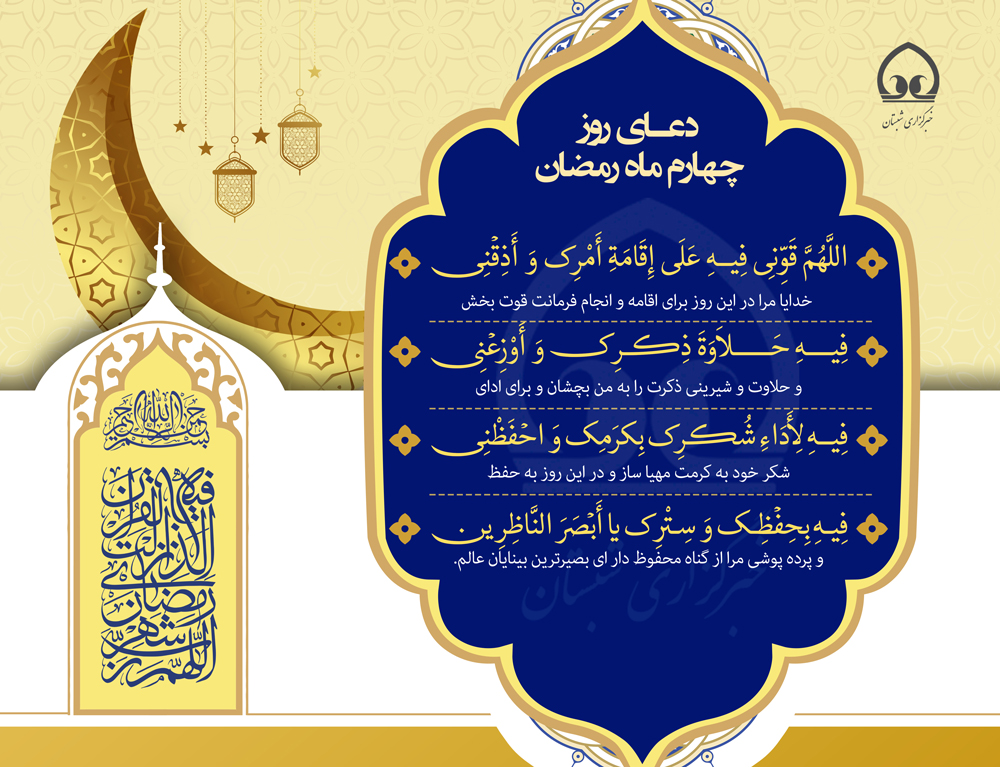 دعای روز
چهارم ماه رمضان
اللَّهُمَّ قَوِّنِی فِیهِ عَلَی إِقَامَةِ أَمْرِک وَ أَذِقْنِی
خدایا مرا در این روز برای اقامه و انجام فرمانت قوت بخش
فِیهِ حَلاَوَةَ ذِکْرِک وَ أَوْزِعْنِی
و حلاوت و شیرینی ذکرت را به من بچشان و برای ادای
فِیهِ لِأَدَاءِ شُکْرِک بِکَرَمِک وَ احْفَظْنِی
شکر خود به کرمت مهیا ساز و در این روز به حفظ
فِیهِ بِحِفْظِک وَ سِتْرِک یا أَبْصَرَ النَّاظِرِین
و پرده پوشی مرا از گناه محفوظ دار ای بصیرترین بینایان عالم.
خبرگزاری شبستان
خبرگزاری شبستان
بسم الله الرحمن الرحیم
اللهم رب شهر رمضان الذی انزلت فیه القرآن